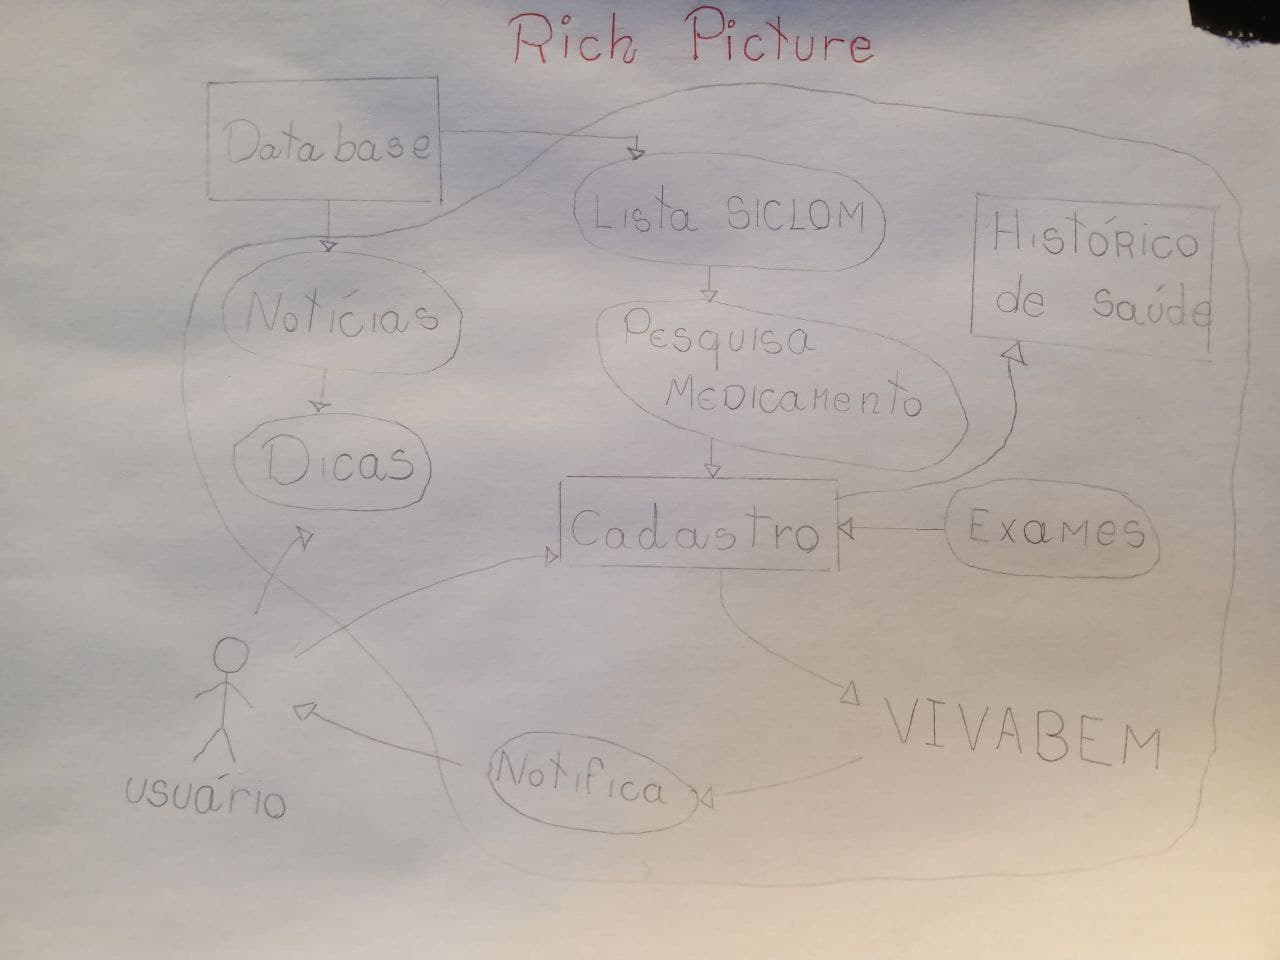 Rich Picture
Database
Lista SICLOM
Histórico
de Saúde
Notícias
Pesquisa
Medicamento
Dicas
Cadastro
Exames
VIVABEM
Notifica
usuário